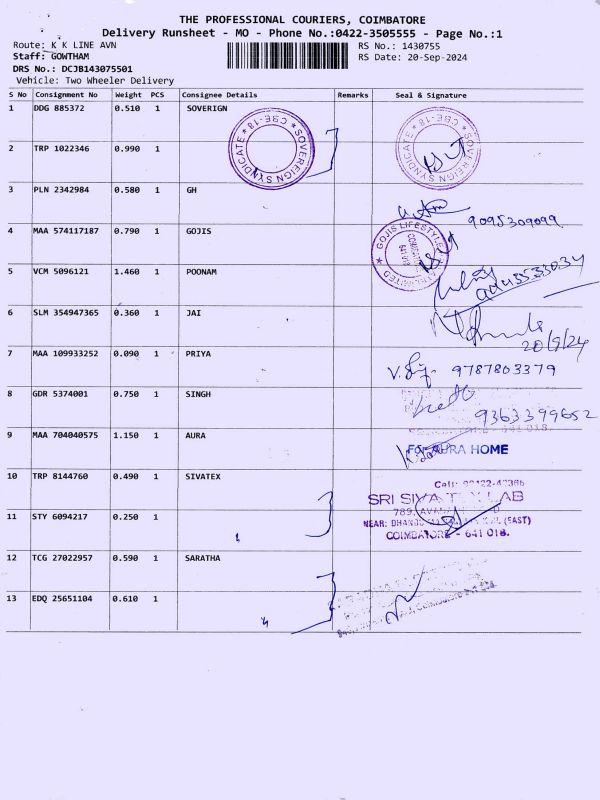 THE PROFESSIONAL COURIERS, COIMBATORE
Delivery Runsheet - MO - Phone No.:0422-3505555 - Page No.:1
Route: K K LINE AVN
RS No.: 1430755
Staff: GOWTHAM
RS Date: 20-Sep-2024
DRS No.: DCJB143075501
Vehicle: Two Wheeler Delivery
S No Consignment No Weight PCS Consignee Details Remarks Seal & Signature
1 DDG 885372 0.510 1 SOVERIGN
SOVEREIGN SYNDICATE ★ CBE-18 ★
SOVEREIGN SYNDICATE ★ CBE-18 ★
2 TRP 1022346 0.990 1
3 PLN 2342984 0.580 1 GH
9095309099
4 MAA 574117187 0.790 1 GOJIS
GOJIS LIFESTYLE
5 VCM 5096121 1.460 1 POONAM
6 SLM 354947365 0.360 1 JAI
20/9/24
7 MAA 109933252 0.090 1 PRIYA
9787803379
8 GDR 5374001 0.750 1 SINGH
9363399652
9 MAA 704040575 1.150 1 AURA
For AURA HOME
10 TRP 8144760 0.490 1 SIVATEX
SRI SIVA TEX LAB
11 STY 6094217 0.250 1
NEAR: (EAST)
COIMBATORE - 641 018.
12 TCG 27022957 0.590 1 SARATHA
13 EDQ 25651104 0.610 1